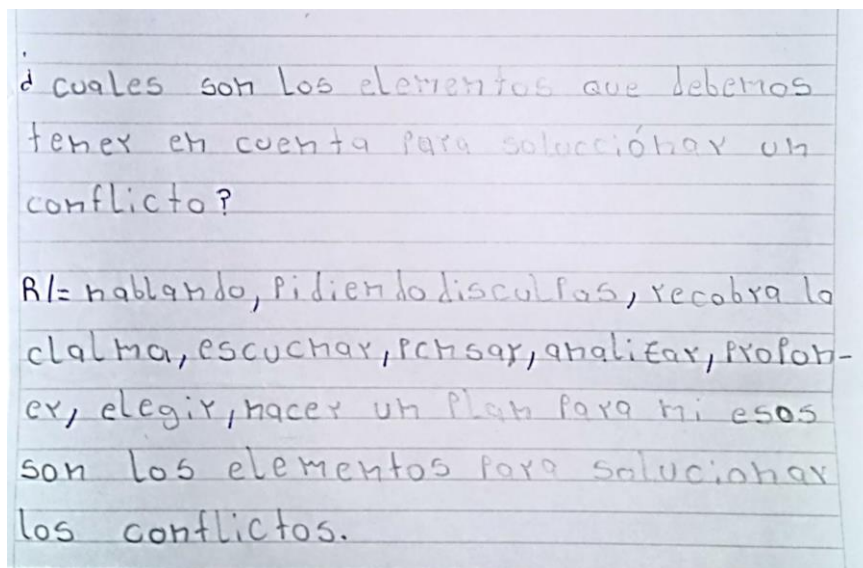 ¿ cuales son los elementos que debemos
tener en cuenta para solucciónar un
conflicto?
R/= hablando, pidiendo disculpas, recobra la
clalma, escuchar, pensar, analizar, propon-
er, elegir, hacer un plan para mi esos
son los elementos para solucionar
los conflictos.